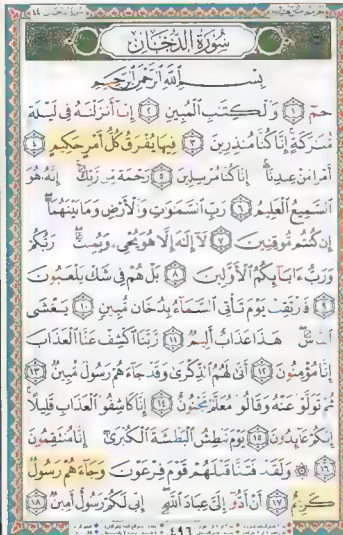 سُورَةُ الدُّخَانِ
بِسْمِ اللَّهِ الرَّحْمَٰنِ الرَّحِيمِ
حمٓ ۝١ وَالْكِتَابِ الْمُبِينِ ۝٢ إِنَّا أَنزَلْنَاهُ فِي لَيْلَةٍ
مُّبَارَكَةٍ إِنَّا كُنَّا مُنذِرِينَ ۝٣ فِيهَا يُفْرَقُ كُلُّ أَمْرٍ حَكِيمٍ ۝٤
أَمْرًا مِّنْ عِندِنَا إِنَّا كُنَّا مُرْسِلِينَ ۝٥ رَحْمَةً مِّن رَّبِّكَ إِنَّهُ هُوَ
السَّمِيعُ الْعَلِيمُ ۝٦ رَبِّ السَّمَٰوَٰتِ وَالْأَرْضِ وَمَا بَيْنَهُمَا
إِن كُنتُم مُّوقِنِينَ ۝٧ لَا إِلَٰهَ إِلَّا هُوَ يُحْيِي وَيُمِيتُ رَبُّكُمْ
وَرَبُّ ءَابَائِكُمُ الْأَوَّلِينَ ۝٨ بَلْ هُمْ فِي شَكٍّ يَلْعَبُونَ
۝٩ فَارْتَقِبْ يَوْمَ تَأْتِي السَّمَاءُ بِدُخَانٍ مُّبِينٍ ۝١٠ يَغْشَى
النَّاسَ هَٰذَا عَذَابٌ أَلِيمٌ ۝١١ رَّبَّنَا اكْشِفْ عَنَّا الْعَذَابَ
إِنَّا مُؤْمِنُونَ ۝١٢ أَنَّىٰ لَهُمُ الذِّكْرَىٰ وَقَدْ جَاءَهُمْ رَسُولٌ مُّبِينٌ ۝١٣
ثُمَّ تَوَلَّوْا عَنْهُ وَقَالُوا مُعَلَّمٌ مَّجْنُونٌ ۝١٤ إِنَّا كَاشِفُو الْعَذَابِ قَلِيلًا
إِنَّكُمْ عَائِدُونَ ۝١٥ يَوْمَ نَبْطِشُ الْبَطْشَةَ الْكُبْرَىٰ إِنَّا مُنتَقِمُونَ
۝١٦ ۞ وَلَقَدْ فَتَنَّا قَبْلَهُمْ قَوْمَ فِرْعَوْنَ وَجَاءَهُمْ رَسُولٌ
كَرِيمٌ ۝١٧ أَنْ أَدُّوا إِلَيَّ عِبَادَ اللَّهِ إِنِّي لَكُمْ رَسُولٌ أَمِينٌ ۝١٨
٤٩٦